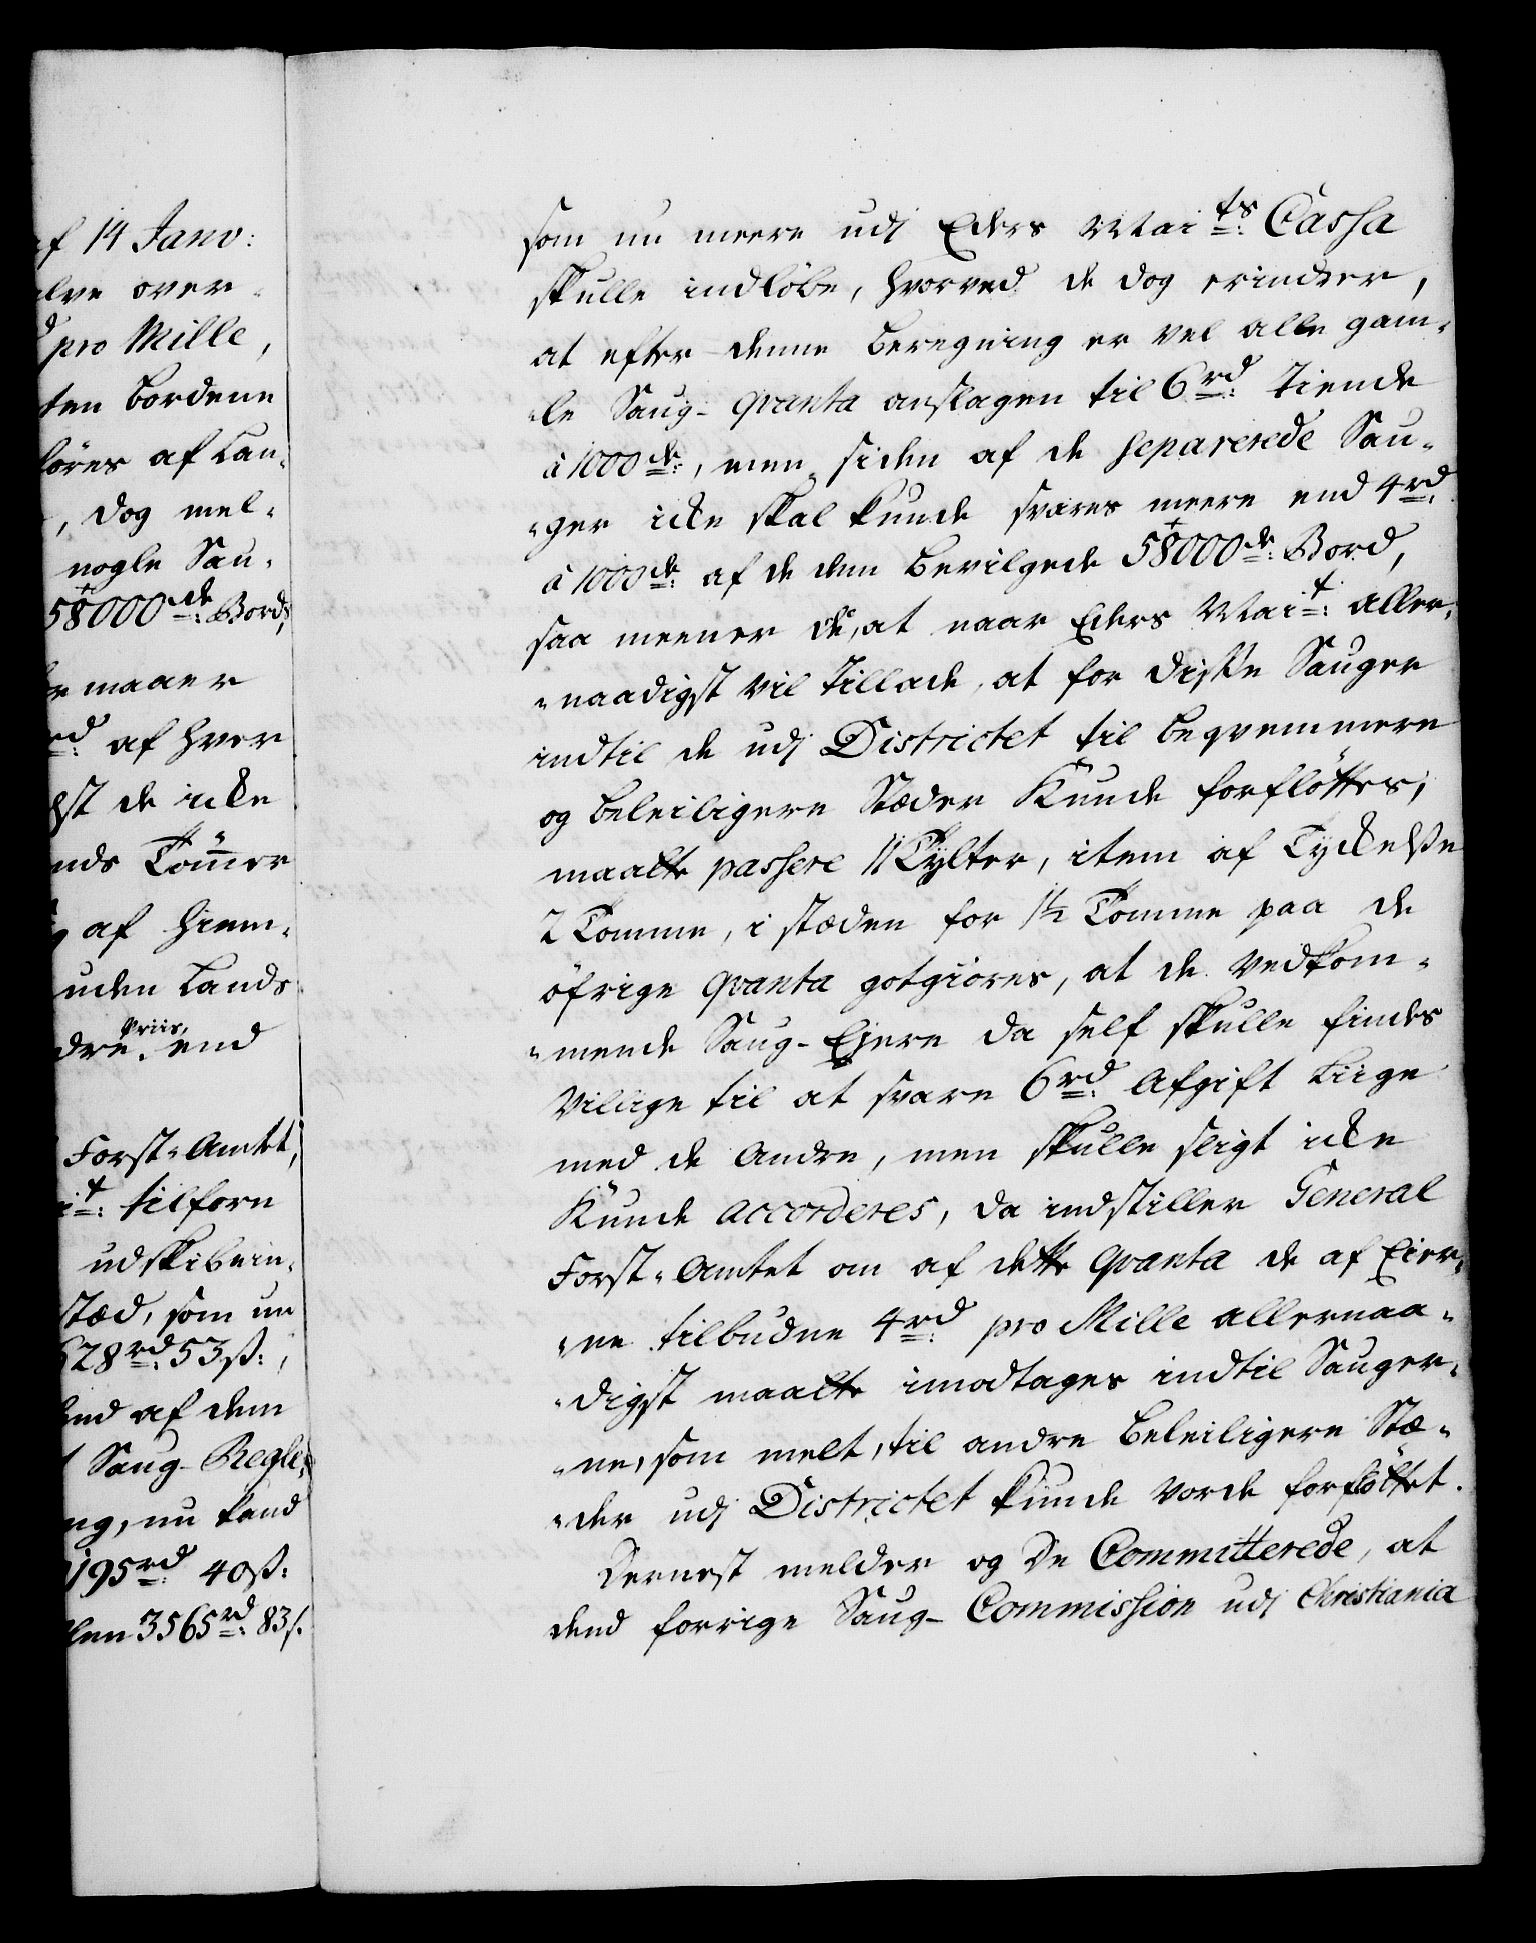 af 14 Janv:
alve over-
pro Mille,
ten Bordene
föres af Lan-
, dog mel-
nogle Sau-
58000de: Bord,
maaer
rd: af hver
st de icke
nds Tömer
af hiem-
uden Lands
Priis,
dre end
Forst-Amtet,
it: tilforn
udskibnin-
stæd, som nu
628rd: 53ß:,
end af dem
Saug-Regle-
ng, nu kand
195rd: 40ß:
len 3565rd: 83ß.
som nu meere udj Eders Maits: Cassa
skulle indløbe, hvorved de dog erindrer,
at efter denne Beregning er vel alle gam-
-le Saug-qvanta anslagen til 6rd: Tiende
à 1000de:, men siden af de separerede Sau-
-ger icke skal kunde svares meere end 4rd:
à 1000de: af de dem bevilgede 58000de: Bord,
saa meener de, at naar Eders Mait: aller-
-naadigst vil tillade, at for disse Sauger
indtil de udj Districtet til beqvemmere
og beleiligere Stæder Kunde forfløttes,
maatte passere 11 Tylter, item af Tyckelse
2 Tomme, i stæden for 1½ Tomme paa de
öfrige qvanta gotgiöres, at de vedkom-
-mende Saug-Ejere da self skulle findes
villige til at svare 6rd: Afgift liige
med de Andre, men skulle sligt icke
Kunde accorderes, da indstiller General
Forst-Amtet om af dette qvanta de af Eier-
-ne tilbudne 4rd: pro Mille allernaa-
-digst maatte imodtages indtil Sauger-
-ne, som melt, til andre beleiligere Stæ-
-der udj Districtet kunde vorde forfløttet.
Dernest melder og De Committerede, at
dend forrige Saug-Commission udj Christiania